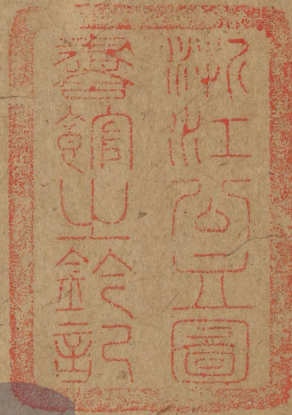 浙江公立圖
書館之鈐記